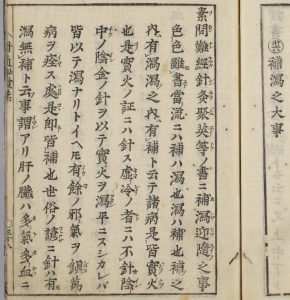 補瀉之大事
素問難經針灸聚英等ノ書ニ補瀉迎隨之事
色色雖書當流ニハ補ハ瀉也瀉ハ補也補之
内有瀉瀉之内有補ト云テ諸病是皆實火
也是實火ノ証ニハ針ス虚冷ノ者ニハ不針陰
中ノ陰金ノ針ヲ以テ實火ヲ瀉平ニスシカレバ
皆以テ瀉ナリトイヘ𪜈有餘ノ邪氣ヲ鎮萬
病ヲ痊ス處是即皆補也世俗ノ諺ニ針ハ有
瀉無補ト云事謂アリ肝ノ臓ハ多氣多血ニ